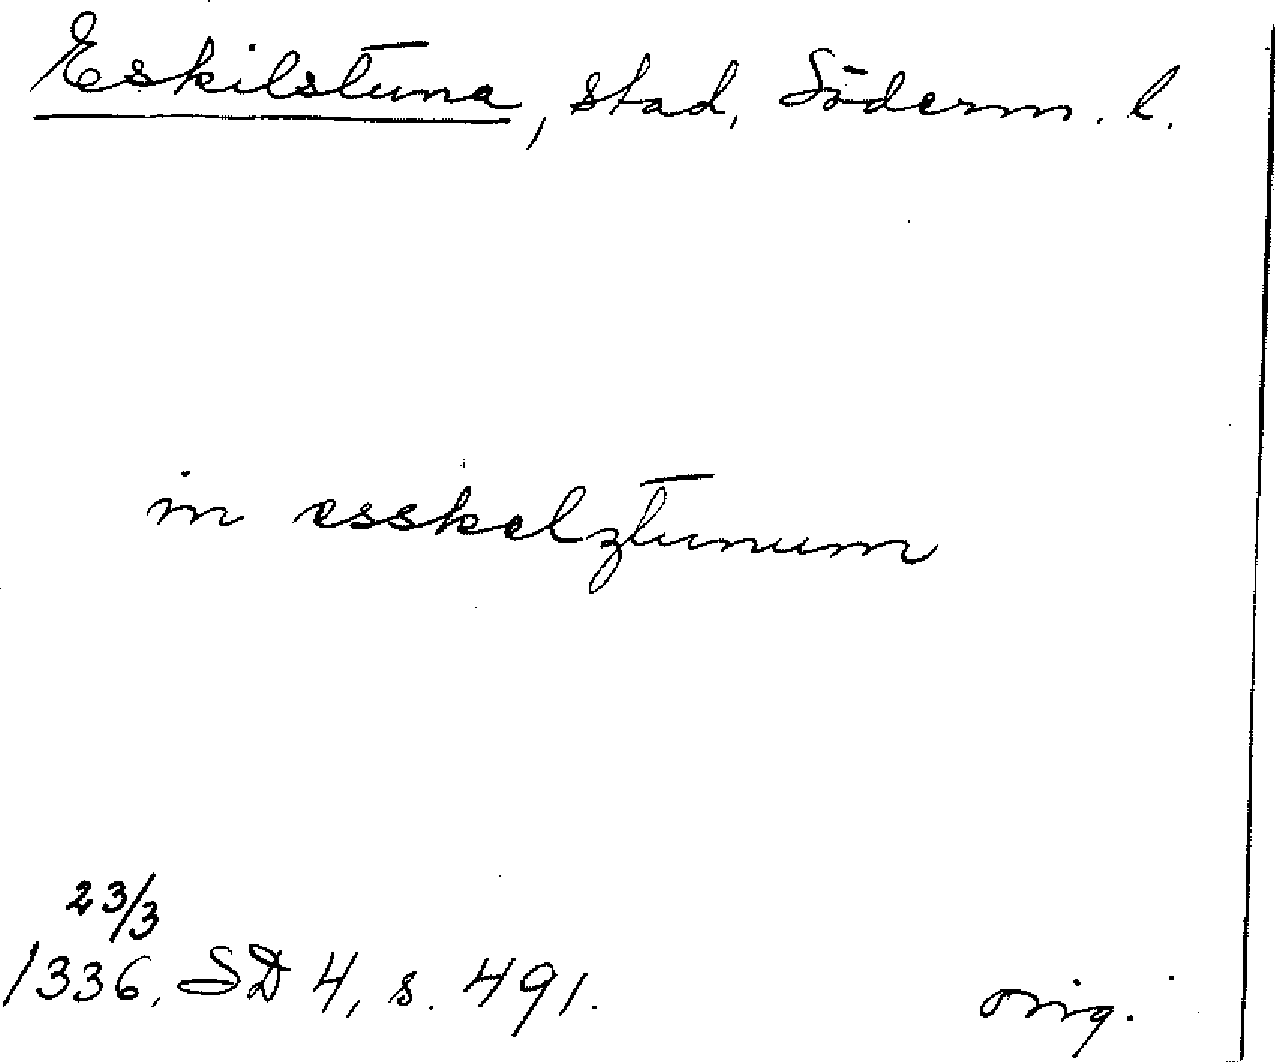 Eskilstuna, stad, Söderm. l.
in esskelztunum
23/3
1336, SD 4, s. 491.
orig.